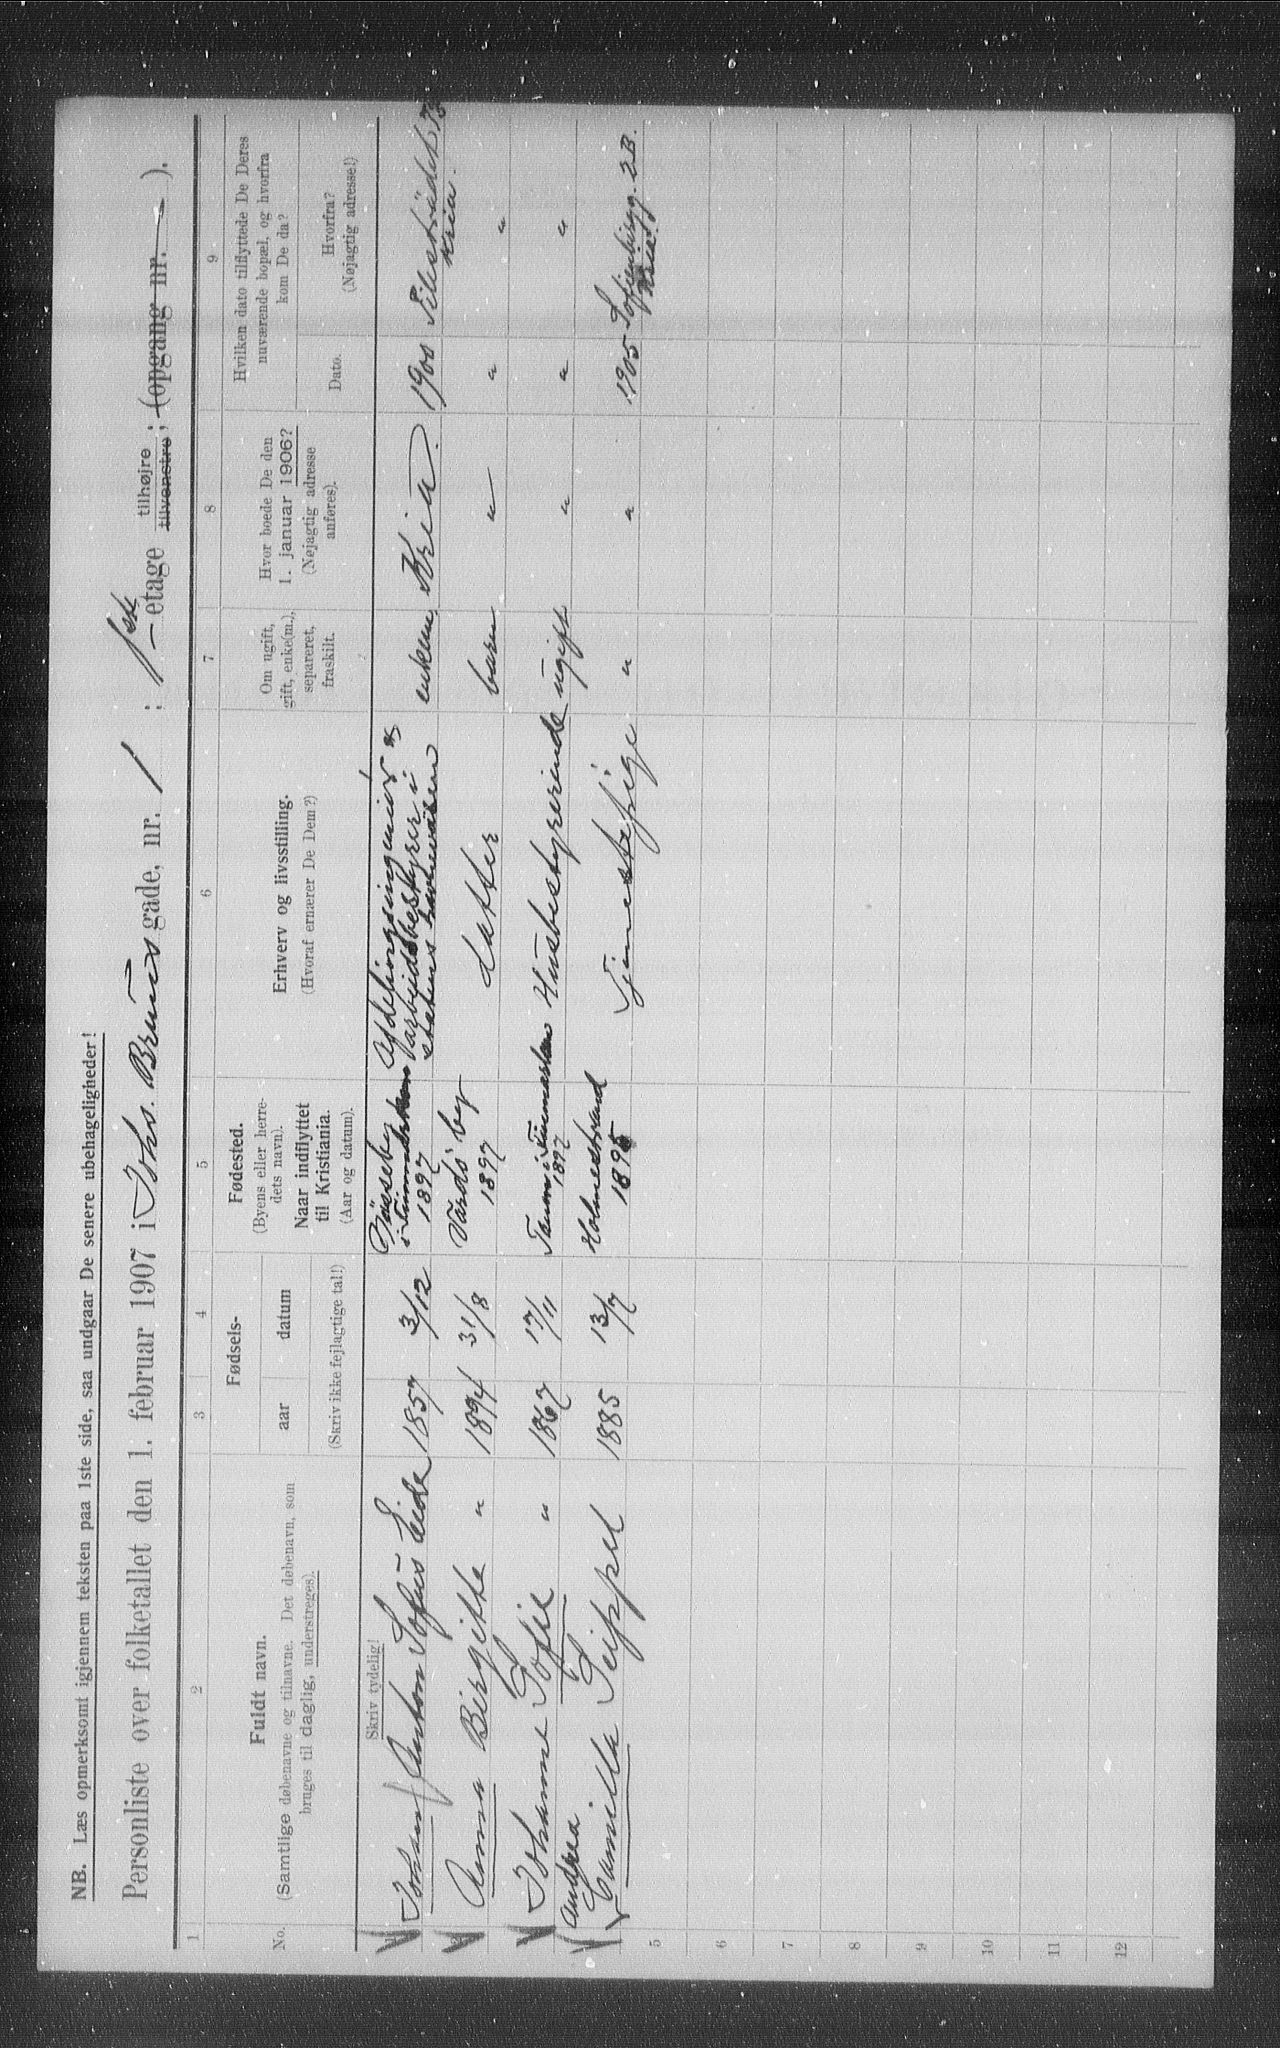 NB. Læs opmerksomt igjennem teksten paa 1ste side, saa undgaar De senere ubehageligheder!
Personliste over folketallet den 1. februar 1907 i Johs. Bruns gade, nr. 1 ; 1ste etage tilhøjre tilvenstre; (opgang nr. — ).
1 2 3 4 5 6 7 8 9
No.
Fuldt navn.
(Samtlige døbenavne og tilnavne. Det døbenavn, som
bruges til daglig, understreges).
Fødsels-
aar datum
(Skriv ikke fejlagtige tal!)
Fødested.
(Byens eller herre-
dets navn).
Naar indflyttet
til Kristiania.
(Aar og datum).
Erhverv og livsstilling.
(Hvoraf ernærer De Dem?)
Om ugift,
gift, enke(m.),
separeret,
fraskilt.
Hvor boede De den
1. januar 1906?
(Nøjagtig adresse
anføres).
Hvilken dato tilflyttede De Deres
nuværende bopæl, og hvorfra
kom De da?
Dato.
Hvorfra?
(Nøjagtig adresse!)
Skriv tydelig!
Johan Anton Sofus 1857 3/12 i Finmarken 1897 Afdelingsingeniør og arbeidsbestyrer i statens havnevæsen enkem. Kria. 1900 Pilestrædet Kria.
Anna Birgitte " 1894 31/8 Vardö by 1897 datter barn " " "
Johanne Sofie " 1867 17/11 Tanen i Finmarken 1897 Husbestyrerinde ugift " " "
Andrea.
Camilla Seippel 1885 13/7 Holmestrand 1895 Tjenestepige " " 1905 Sofienbergg. 2B. Kria.
5
6
7
8
9
10
11
12